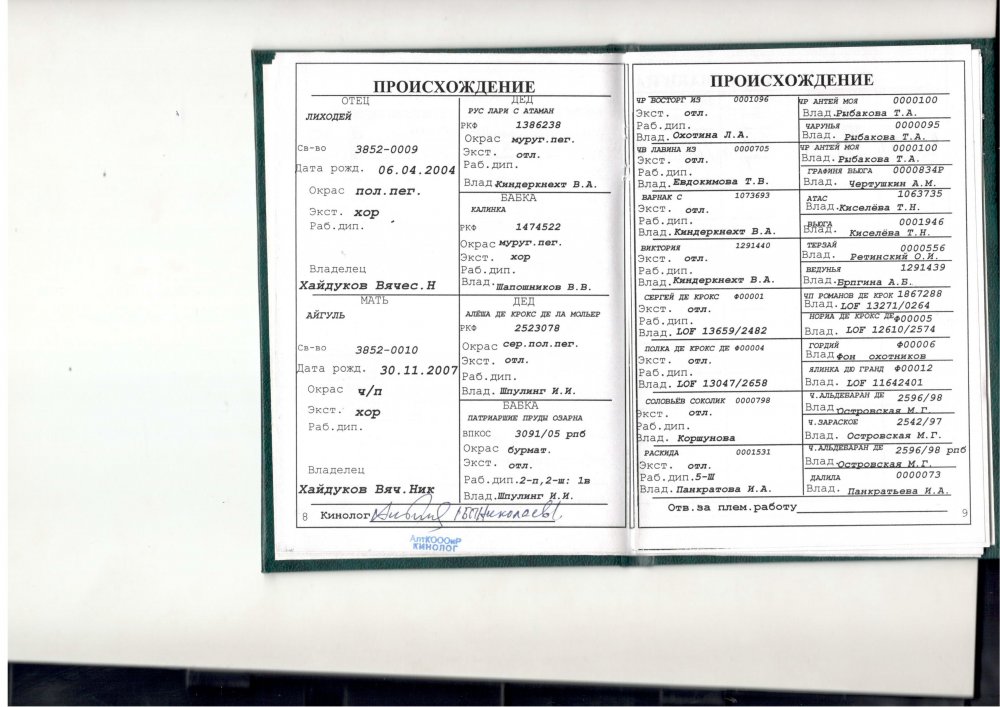 ПРОИСХОЖДЕНИЕ
ОТЕЦ
ЛИХОДЕЙ
Св-во 3852-0009
Дата рожд. 06.04.2004
Окрас пол.пег.
Экст. хор
Раб.дип.
Владелец
Хайдуков Вячес.Н
МАТЬ
АЙГУЛЬ
Св-во 3852-0010
Дата рожд. 30.11.2007
Окрас ч/п
Экст. хор
Раб.дип.
Владелец
Хайдуков Вяч.Ник
ДЕД
РУС ЛАРИ С АТАМАН
РКФ 1386238
Окрас муруг.пег.
Экст. отл.
Раб.дип.
Влад Киндеркнехт В.А.
БАБКА
КАЛИНКА
РКФ 1474522
Окрас муруг.пег.
Экст. хор
Раб.дип.
Влад.Шапошников В.В.
ДЕД
АЛЁША ДЕ КРОКС ДЕ ЛА МОЛЬЕР
РКФ 2523078
Окрас сер.пол.пег.
Экст. отл.
Раб.дип.
Влад. Шпулинг И.И.
БАБКА
ПАТРИАРШИЕ ПРУДЫ ОЗАРНА
ВПКОС 3091/05 рпб
Окрас бурмат.
Экст. отл.
Раб.дип.2-п,2-ш: 1в
Влад.Шпулинг И.И.
8 Кинолог
АлтКОООиР
КИНОЛОГ
ПРОИСХОЖДЕНИЕ
ЧР ВОСТОРГ ИЗ 0001096
Экст. отл.
Раб.дип.
Влад. Охотина Л.А.
ЧВ ЛАВИНА ИЗ 0000705
Экст. отл.
Раб.дип.
Влад. Евдокимова Т.В.
ВАРНАК С 1073693
Экст. отл.
Раб.дип.
Влад. Киндеркнехт В.А.
ВИКТОРИЯ 1291440
Экст. отл.
Раб.дип.
Влад.Киндеркнехт В.А.
СЕРГЕЙ ДЕ КРОКС Ф00001
Экст. отл.
Раб.дип.
Влад. LOF 13659/2482
ПОЛКА ДЕ КРОКС ДЕ Ф00004
Экст. отл.
Раб.дип.
Влад. LOF 13047/2658
СОЛОВЬЁВ СОКОЛИК 0000798
Экст. отл.
Раб.дип.
Влад. Коршунова
РАСКИДА 0001531
Экст. отл.
Раб.дип.5-Ш
Влад.Панкратова И.А.
ЧР АНТЕЙ МОЯ 0000100
Влад.Рыбакова Т.А.
ЧАРУНЬЯ 0000095
Влад. Рыбакова Т.А.
ЧР АНТЕЙ МОЯ 0000100
Влад.Рыбакова Т.А.
ГРАФИНЯ ВЬЮГА 0000834Р
Влад. Чертушкин А.М.
АТАС 1063735
Влад.Киселёва Т.Н.
ВЬЮГА 0001946
Влад. Киселёва Т.Н.
ТЕРЗАЙ 0000556
Влад. Ретинский О.И.
ВЕДУНЬЯ 1291439
Влад.Брпгина А.Б.
ЧП РОМАНОВ ДЕ КРОК 1867288
Влад. LOF 13271/0264
НОРИА ДЕ КРОКС ДЕ Ф00005
Влад. LOF 12610/2574
ГОРДИЙ Ф00006
Влад фон охотников
ЯЛИНКА ДЮ ГРАНД Ф00012
Влад. LOF 11642401
Ч.АЛЬДЕБАРАН ДЕ 2596/98
Влад Островская М.Г
Ч.ЗАРАСКОЕ 2542/97
Влад. Островская М.Г.
Ч.АЛЬДЕБАРАН ДЕ 2596/98 рпб
Влад Островская М.Г.
ДАЛИЛА 0000073
Влад. Панкратьева И.А.
Отв.за плем.работу
9